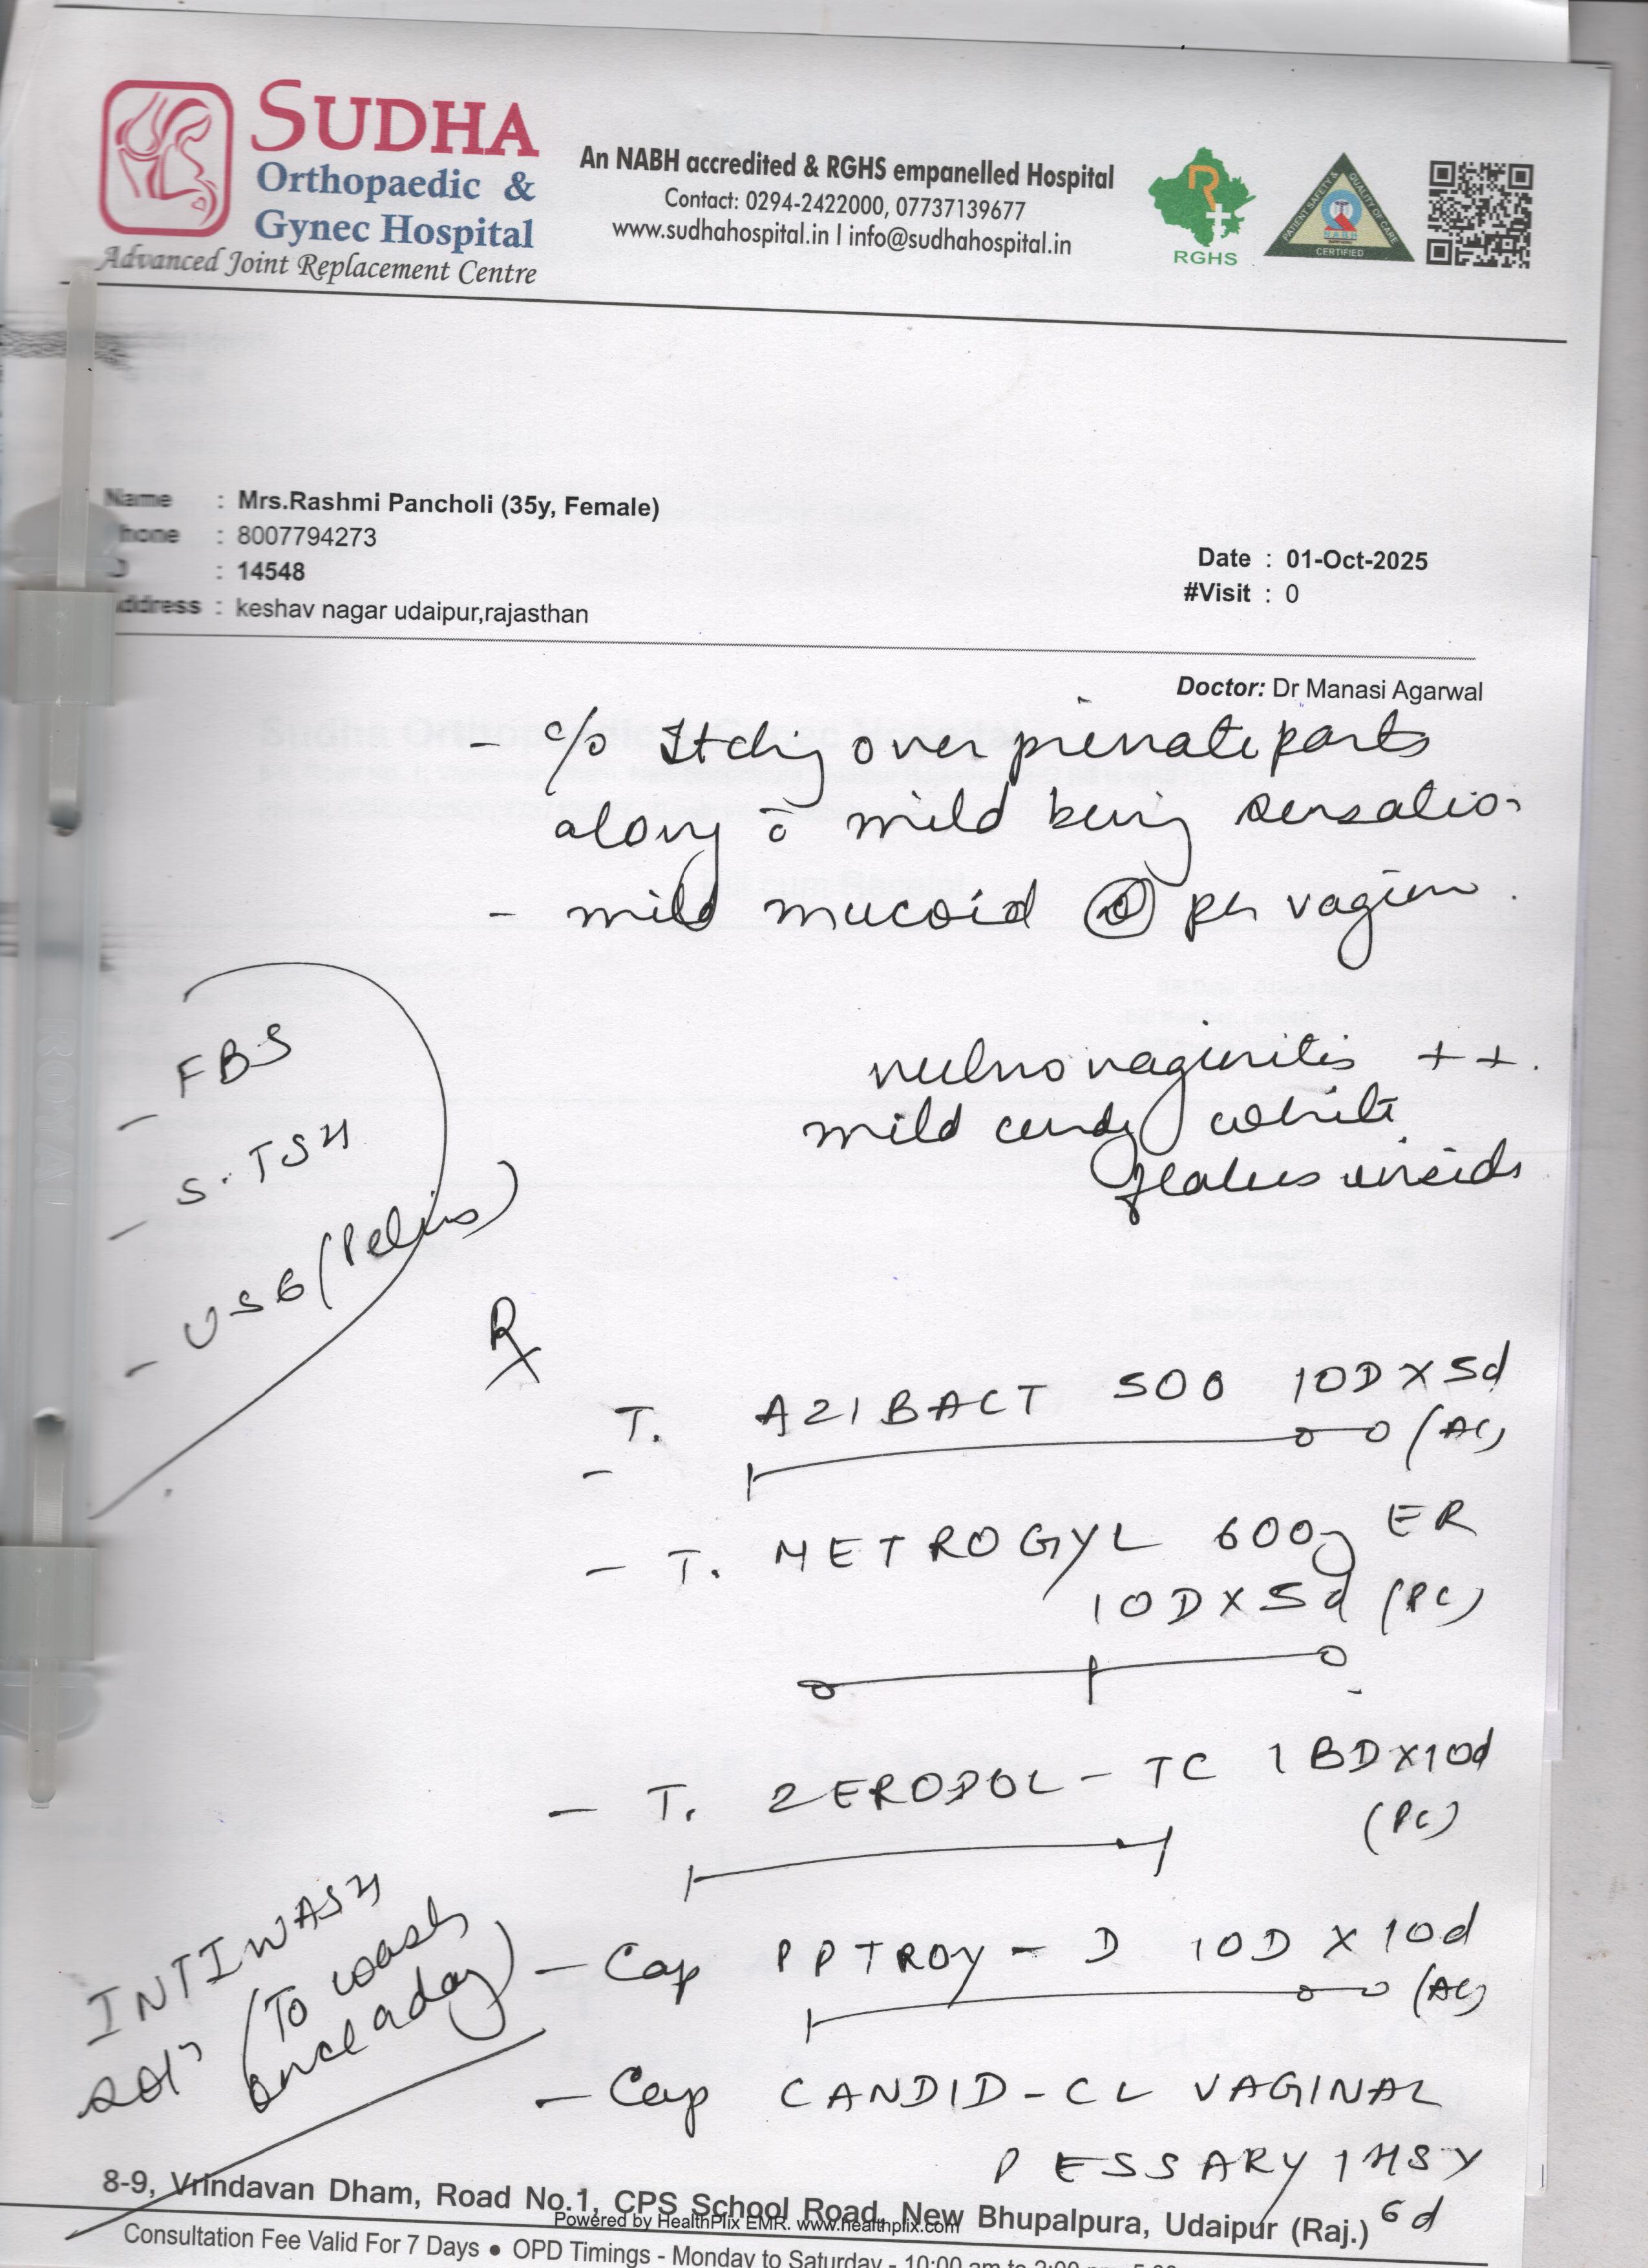 SUDHA
Orthopaedic &
Gynec Hospital
Advanced Joint Replacement Centre
An NABH accredited & RGHS empanelled Hospital
Contact: 0294-2422000, 07737139677
www.sudhahospital.in | info@sudhahospital.in
RGHS
PATIENT SAFETY & QUALITY OF CARE
NABH
CERTIFIED
Name : Mrs.Rashmi Pancholi (35y, Female)
Phone : 8007794273
ID : 14548
Address : keshav nagar udaipur,rajasthan
Date : 01-Oct-2025
#Visit : 0
Doctor: Dr Manasi Agarwal
- c/o Itching over private parts
along c̄ mild sensation
- mild mucoid per vagina.
vulvovaginitis ++.
mild curdy white
flakes inside
- FBS
- S.TSH
- USG (Pelvis)
Rx
- T. AZIBACT 500 1OD X 5d
(AC)
- T. METROGYL 600mg ER
1OD X 5d (PC)
- T. ZERODOL-TC 1 BD X 10d
(PC)
- Cap PPTROY-D 1OD X 10d
(AC)
- Cap CANDID-CL VAGINAL
PESSARY 1 HS X
6d
INTIWASH
soln (To wash
once a day)
8-9, Vrindavan Dham, Road No.1, CPS School Road, New Bhupalpura, Udaipur (Raj.)
Powered by HealthPlix EMR. www.healthplix.com
Consultation Fee Valid For 7 Days ● OPD Timings - Monday to Saturday - 10:00 am to 2:00 pm
ROYAL